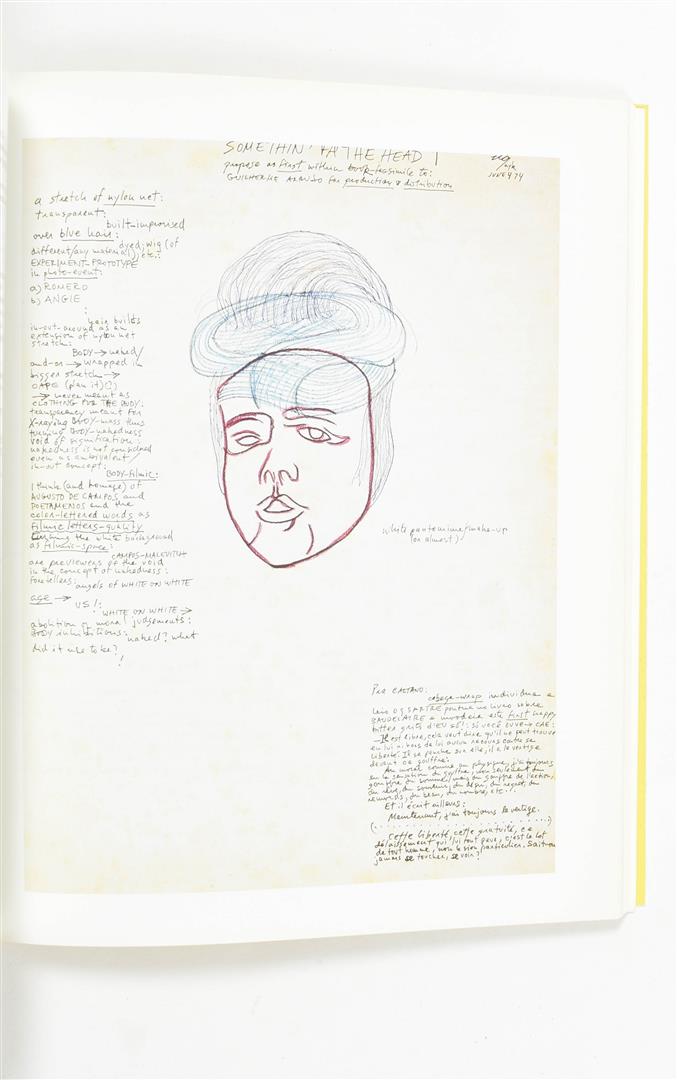 SOMETHIN' THE HEAD 1
propose as first within book-facsimile to:
GUILHERME ARAUJO for production & distribution
JUNE 9 74
a stretch of nylon net:
transparent:
built-improvised
over blue hair:
dyed; wig (of
different/any material); etc.:
EXPERIMENT-PROTOTYPE
in photo-event:
a) ROMERO
b) ANGIE
:
hair builds
in-out-around as an
extension of nylon net
stretch:
BODY → naked/
and-or → wrapped in
bigger stretch →
CAPE (plan it)
→ never meant as
CLOTHING FOR THE BODY:
transparency meant for
X-raying BODY-mass thus
turning BODY-nakedness
void of signification:
nakedness is not considered
even as ambivalent/
in-out concept:
BODY-filmic:
I think (and homage) of
AUGUSTO DE CAMPOS and
POETAMENOS and the
color-lettered words as
filmic letters-quality
the white background
as filmic-space:
CAMPOS-MALEVITCH
are previewers of the void
in the concept of nakedness:
foretellers: angels of WHITE ON WHITE
age →
US!:
WHITE ON WHITE →
abolition of moral judgements:
BODY inhibitions: naked? what
did it use to be?
!
white pantomime/make-up
(or almost)
Pra CAETANO:
cabeça-wrap individua e
leio o q SARTRE no livro sobre
BAUDELAIRE e este first happy
bitter grito d'EU SÓ!: só você ouve → CAE:
— Il est libre, cela veut dire qu'il ne peut trouver
en lui ni hors de lui aucun recours contre sa
liberté. Il se penche sur elle, il a le vertige
devant ce gouffre:
Au moral comme au physique, j'ai toujours
eu la sensation du gouffre, non seulement du
gouffre du sommeil, mais du gouffre de l'action,
du rêve, du souvenir, du désir, du regret, du
remords, du beau, du nombre, etc.!.
Et il écrit ailleurs:
Maintenant, j'ai toujours le vertige.
(. . . . . . . . . . . . . . . . .)
Cette liberté, cette gratuité, ce
délaissement qui lui font peur, c'est le lot
de tout homme, non le sien particulier. Sait-on
jamais se toucher, se voir?